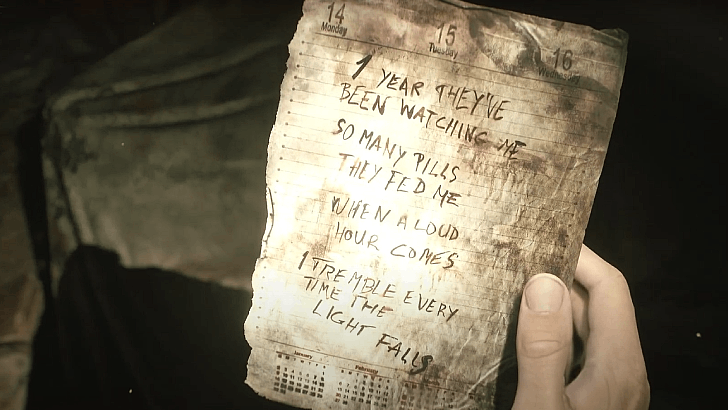 14 15 16
Monday Tuesday Wednesday
1 YEAR THEY'VE
BEEN WATCHING ME
SO MANY PILLS
THEY FED ME
WHEN A LOUD
HOUR COMES
I TREMBLE EVERY
TIME THE
LIGHT FALLS
January February